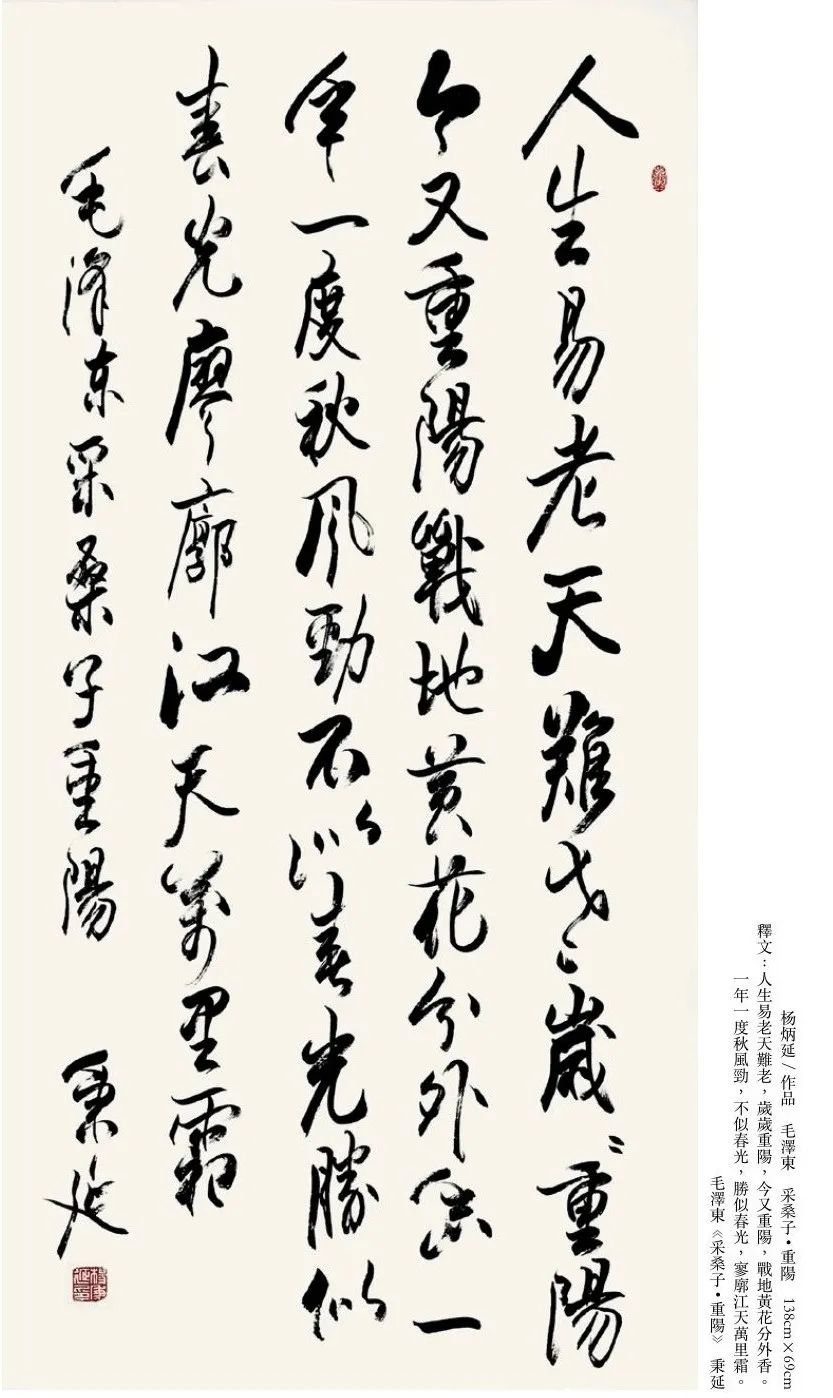 人生易老天難老歲〻重陽
今又重陽戰地黃花分外香一
年一度秋風勁不似春光勝似
春光廖廓江天萬里霜
毛澤東采桑子重陽 秉延
杨炳延/作品 毛澤東 采桑子•重陽 138cm×69cm
釋文：人生易老天難老，歲歲重陽，今又重陽，戰地黃花分外香。
一年一度秋風勁，不似春光，勝似春光，寥廓江天萬里霜。
毛澤東《采桑子•重陽》 秉延